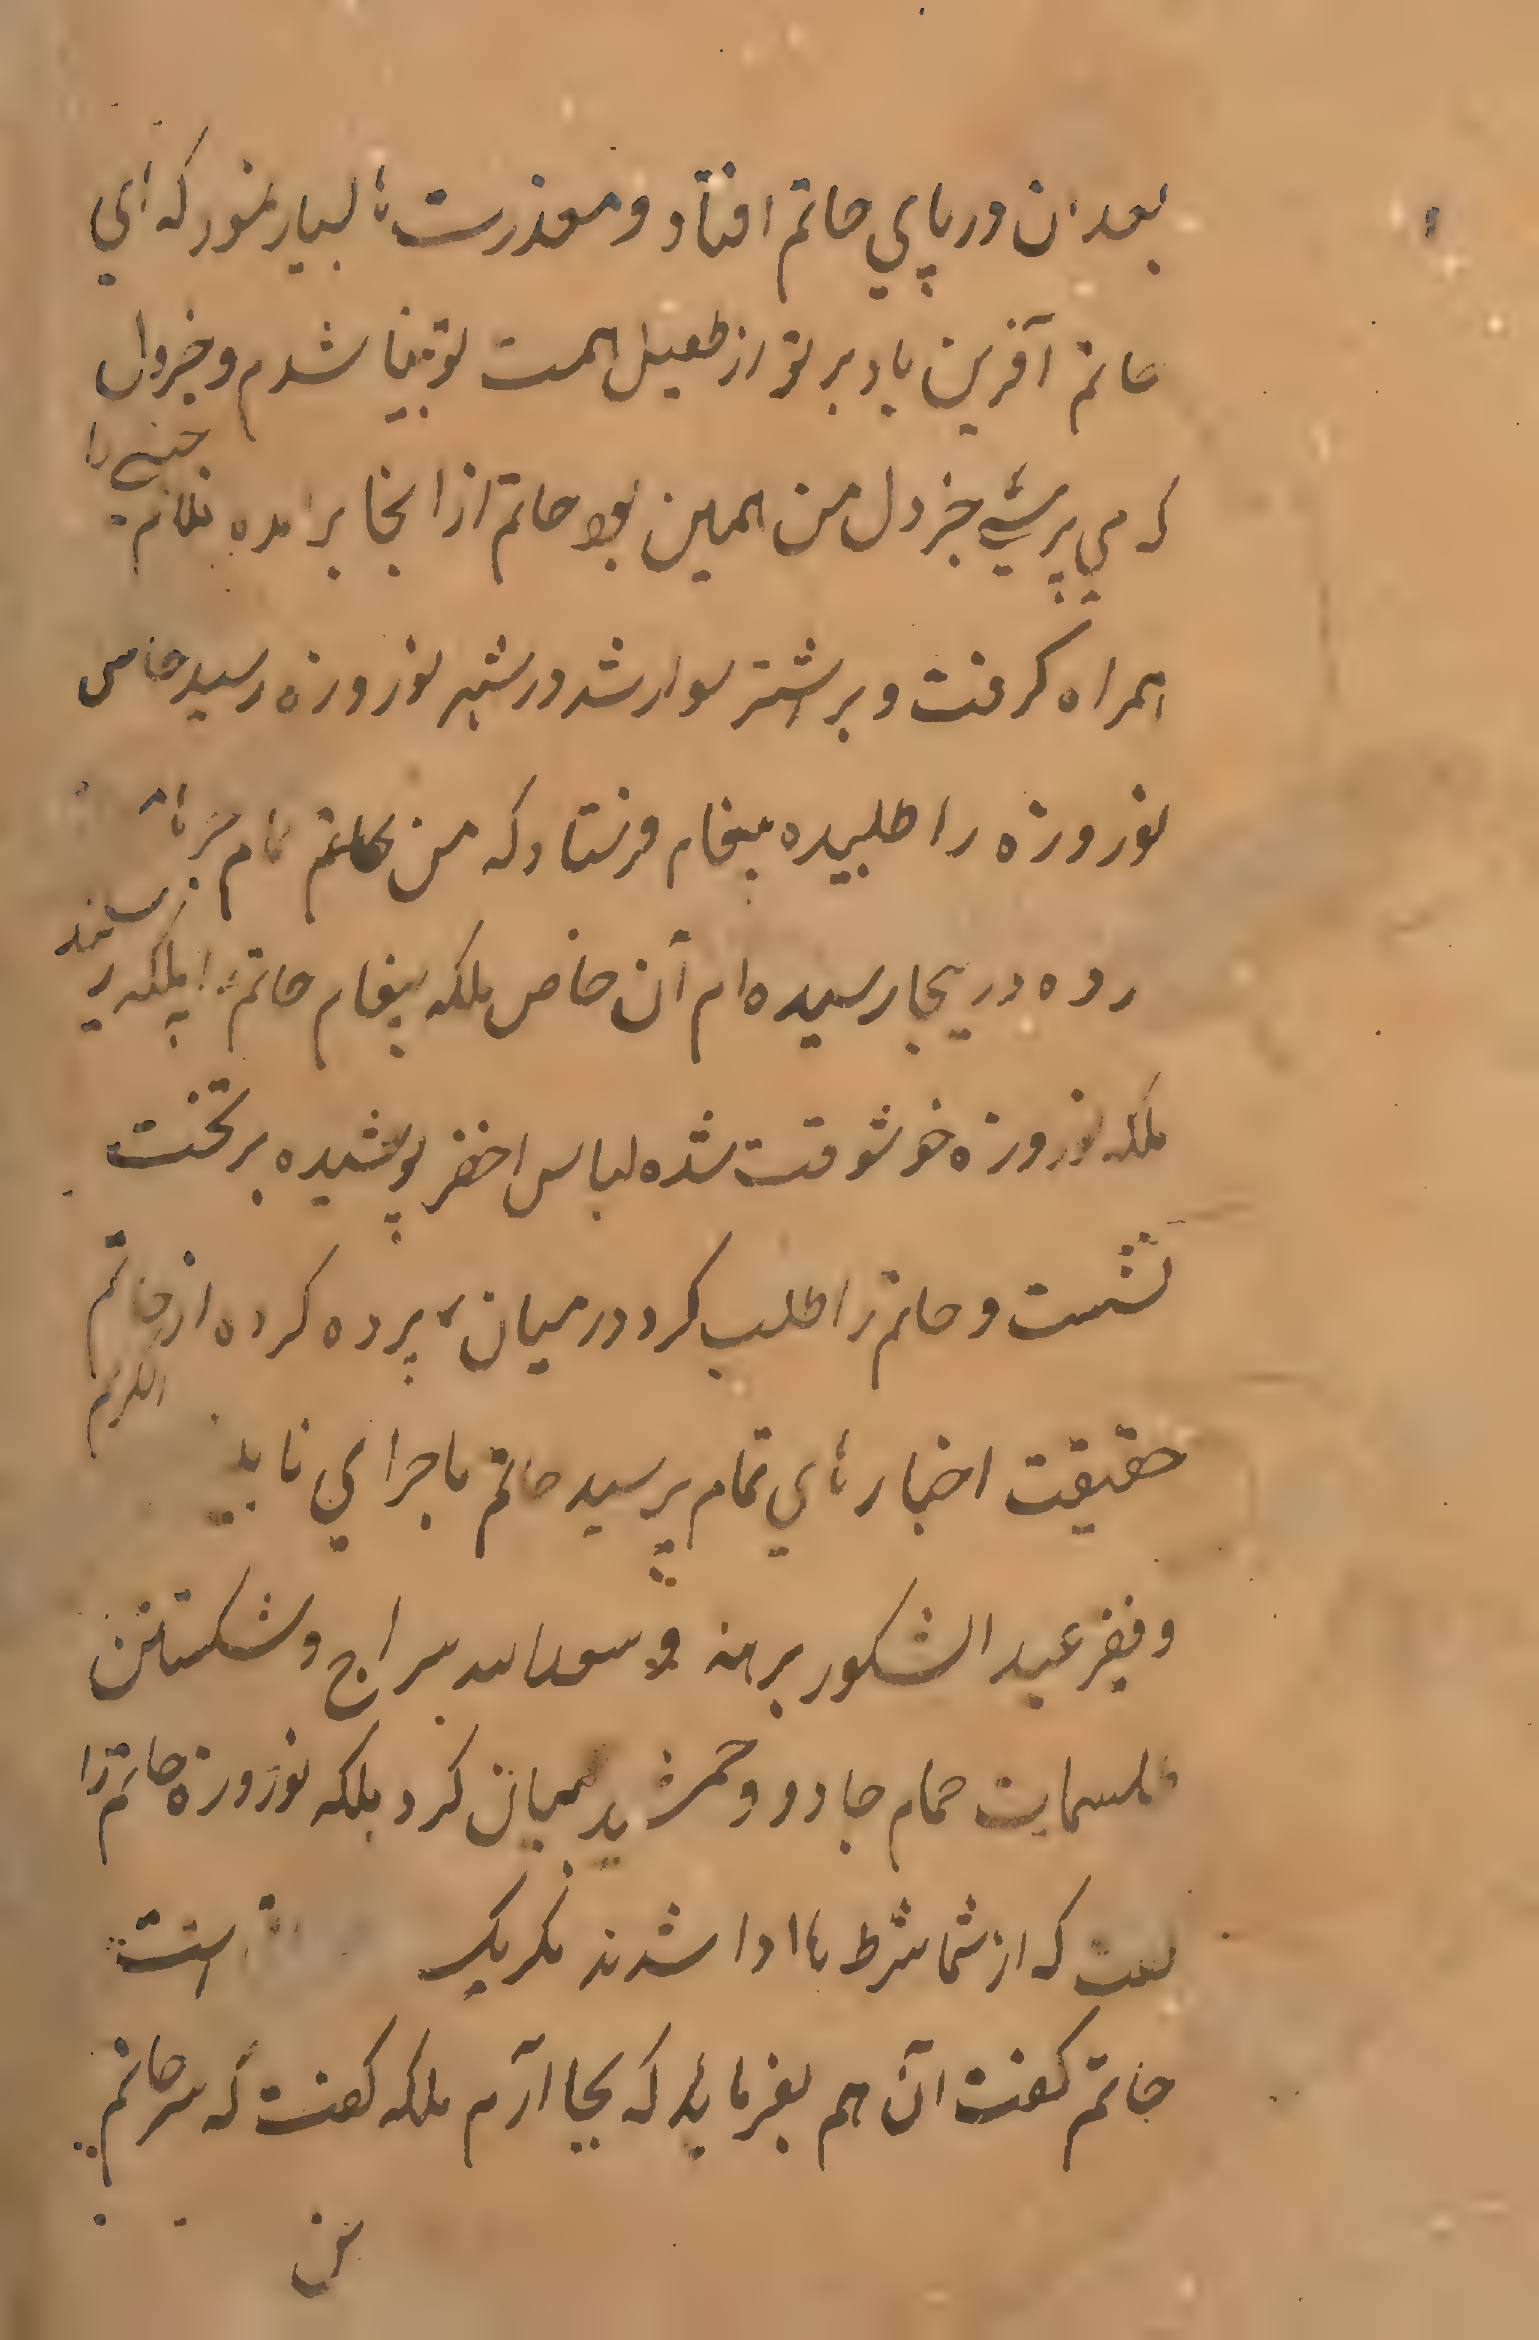 بعد ان در پاي حاتم افتاد و معذرتہا بسیار نمود که اي
حاتم آفرین باد بر تو از طفیل همت تو بینا شدم و خبر دل
که مي پرسي خبر دل من همین بود حاتم از انجا برامده غلام حبشي را
همراه گرفت و بر اشتر سوار شد در شهر نوروزه رسید خاص
نوروزه را طلبیده پیغام فرستاد که من حاتم نام
در ینجا رسیده ام آن خاص ملکه پیغام حاتم را بملکه رسانید
ملکه نوروزه خوشوقت شده لباس اخضر پوشیده بر تخت
نشست و حاتم را طلب کرد در میان پرده کرده از حاتم
حقیقت اخبارهاي تمام پرسید حاتم ماجراي نابینا
و فقیر عبد الشکور برهنه و سوداگر سراج و شکستن
طلسمات حمام جادو و جمشید بیان کرد ملکه نوروزه حاتم را
گفت که از شما شرط ها ادا شدند مگر یک است
حاتم گفت آن هم بفرماید که بجا آرم ملکه گفت که سر حاتم
من